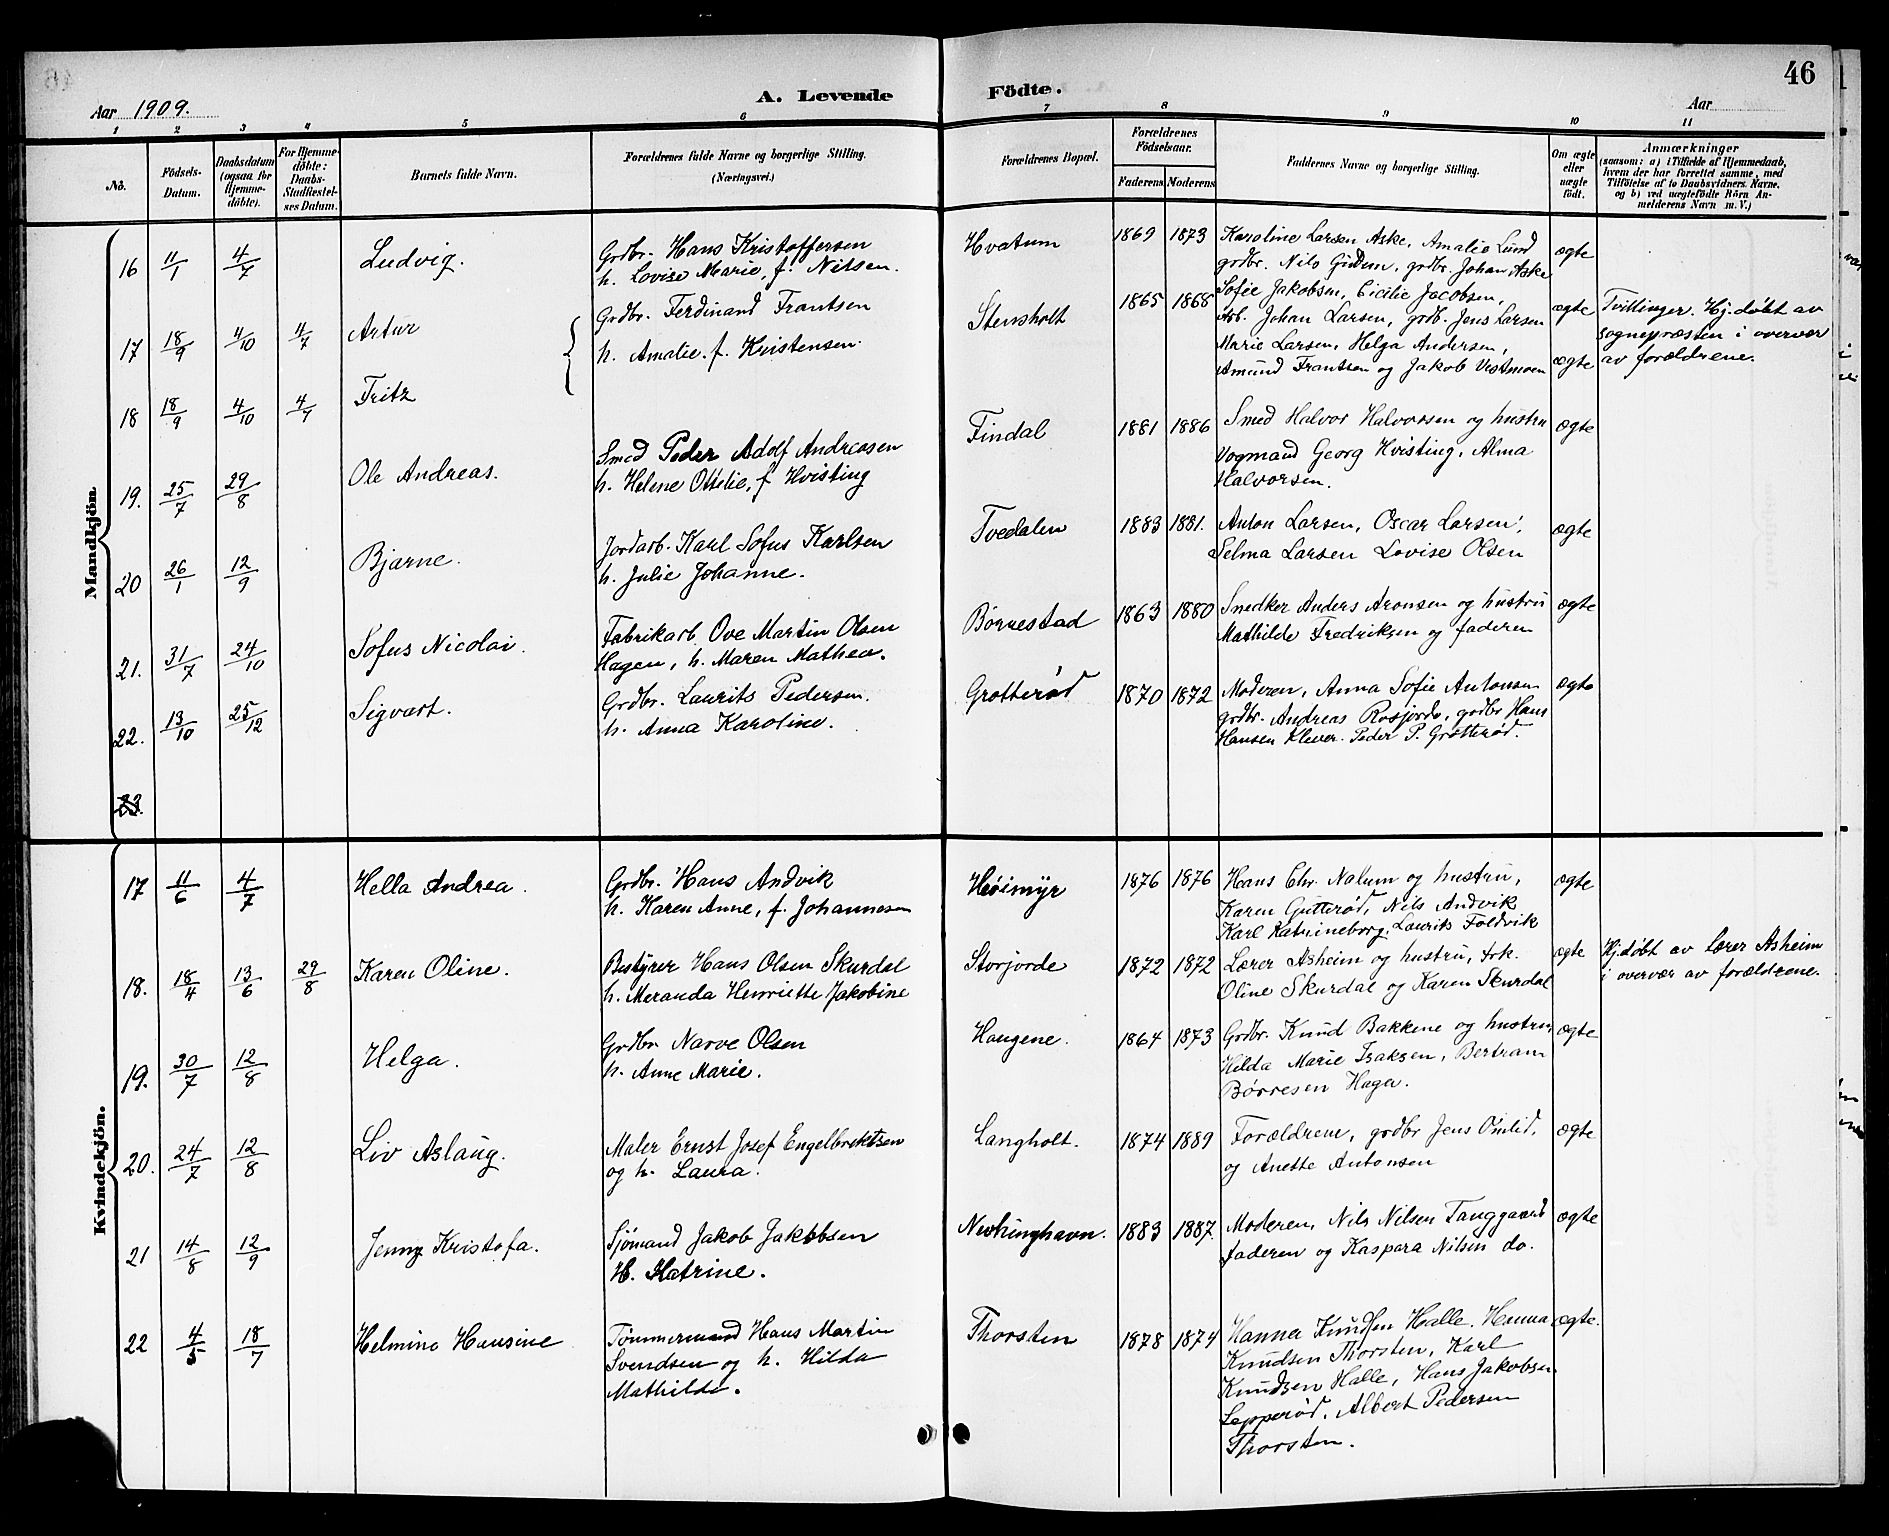 46
Aar 1909. A. Levende Födte. Aar
1 2 3 4 5 6 7 8 9 10 11
No. Födsels-Datum. Daabsdatum (ogsaa for Hjemmedöbte). For Hjemmedöbte: Daabs-Stadfæstelses Datum. Barnets fulde Navn. Forældrenes fulde Navne og borgerlige Stilling. (Næringsvei.) Forældrenes Bopæl. Forældrenes Födselsaar. Faderens Moderens Faddernes Navne og borgerlige Stilling. Om ægte eller uægte födt. Anmærkninger (saasom: a) i Tilfælde af Hjemmedaab, hvem der har forrettet samme, med Tilföielse af to Daabsvidners Navne, og b) ved uægtefödte Börn Anmelderens Navn m. V.)
Mandkjön.
16 11/1 4/7 Ludvig. Grdbr. Hans Kristoffersen Hvatum 1869 1873 Karoline Larsen Aske, Amalie Lund ægte
h. Lovise Marie, f. Nilsen. grdbr. Nils Gudem, grdbr. Johan Aske
17 18/9 4/10 4/7 Artur Grdbr. Ferdinand Frantsen Stensholt 1865 1868 Sofie Jakobsen, Cicilie Jacobsen, ægte Tvillinger. Hj.døbt av
h. Amalie. f. Kristensen. Arb. Johan Larsen, grdb. Jens Larsen sognepræsten i overvær
18 18/9 4/10 4/7 Fritz Marie Larsen, Helga Andersen, ægte av forældrene.
Amund Frantsen og Jakob Vestmoen
19. 25/7 29/8 Ole Andreas. Smed Peder Adolf Andreasen Findal 1881 1886 Smed Halvor Halvorsen og hustru ægte
h. Helene Ottilie, f Hvisting Vogmand Georg Hvisting, Alma
Halvorsen.
20 26/1 12/9 Bjarne. Jordarb. Karl Sofus Karlsen Tvedalen 1883 1881. Anton Larsen, Oscar Larsen, ægte
h. Julie Johanne. Selma Larsen Lovise Olsen
21. 31/7 24/10 Sofus Nicolai. Fabrikarb Ove Martin Olsen Børrestad 1863 1880 Snedker Anders Aronsen og hustru ægte
Hagen, h. Maren Mathea. Mathilde Fredriksen og faderen
22. 13/10 25/12 Sigvart. Grdbr. Laurits Pedersen. Grotterød 1870 1872 Moderen, Anna Sofie Antonsen ægte
h. Anna Karoline. grdbr. Andreas Rosjorde, grdbr Hans
Hansen Klever. Peder P. Grotterød.
23.
Kvindekjön.
17 11/6 4/7 Hella Andrea. Grdbr. Hans Andvik Høimyr 1876 1876 Hans Chr. Nalum og hustru, ægte
h. Karen Anne, f. Johannesen Karen Gutterød, Nils Andvik
Karl Katrineborg, Laurits Foldvik
18. 18/4 13/6 29/8 Karen Oline. Bestyrer Hans Olsen Skurdal Storjorde 1872 1872 Lærer Asheim og hustru, frk. ægte Hj.døbt av Lærer Asheim
h. Meranda Henriette Jakobine Oline Skurdal og Karen Skurdal i overvær av forældrene.
19. 30/7 12/8 Helga. Grdbr Narve Olsen Haugene. 1864 1873 Grdbr. Knud Bakkene og hustru ægte
h. Anne Marie. Hilda Marie Isaksen, Bertram
Børresen Haga.
20. 24/7 12/8 Liv Aslaug. Maler Ernst Josef Engelbrektsen Langholt. 1874 1889 Forældrene, grdbr Jens Omlid, ægte
og h. Laura. og Anette Antonsen
21 14/8 12/9 Jenny Kristofa. Sjømand Jakob Jakobsen Nevlunghavn. 1883 1887. Moderen, Nils Nilsen Tanggaard ægte
H. Katrine. faderen og Kaspara Nilsen do.
22 4/5 18/7 Helmine Hansine Tømmermand Hans Martin Thorsten 1878 1874 Hanna Knudsen Halle. Henna ægte.
Svendsen og h. Hilda Knudsen Thorsten, Karl
Mathilde. Knudsen Halle, Hans Jakobsen
Lepperød, Albert Pedersen
Thorsten.